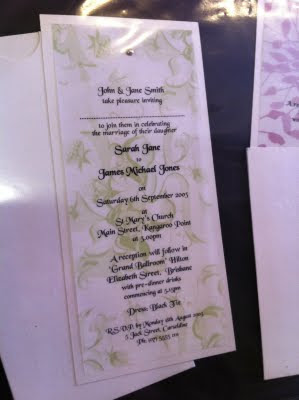 John & Jane Smith
take pleasure inviting
to join them in celebrating
the marriage of their daughter
Sarah Jane
to
James Michael Jones
on
Saturday 6th September 2005
at
St Mary's Church
Main Street, Kangaroo Point
at 3.00pm
A reception will follow in
'Grand Ballroom' Hilton
Elizabeth Street, Brisbane
with pre-dinner drinks
commencing at 5.15pm
Dress: Black Tie
R.S.V.P. by Monday 6th August 2005
5 Jack Street, Carseldine